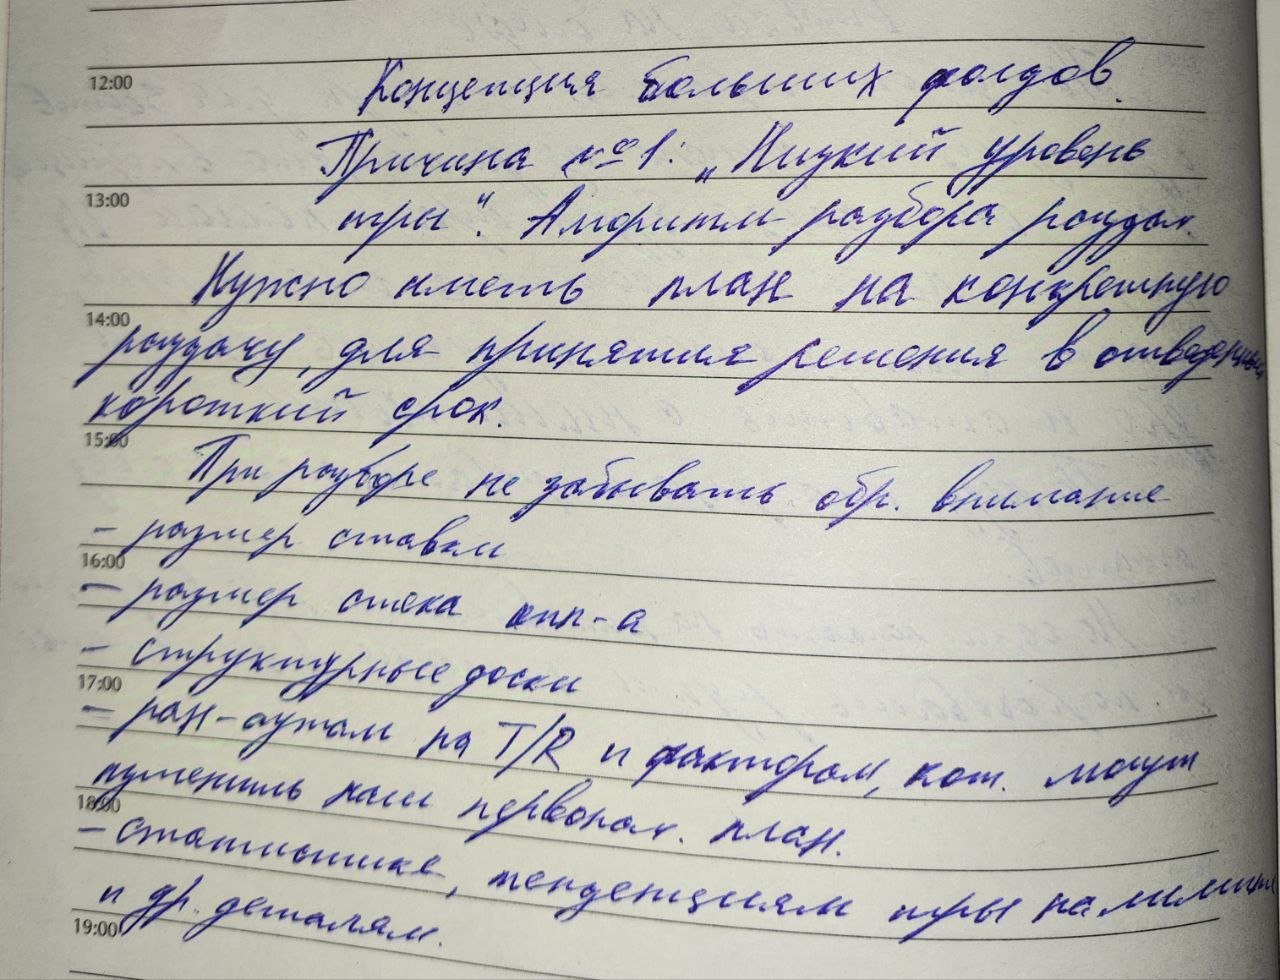 12:00 Концепция больших фолдов.
Причина №1: „Низкий уровень
13:00 игры“. Алгоритм разбора раздач.
Нужно иметь план на конкретную
14:00
раздачу, для принятия решения в отведенный
короткий срок.
15:00
При разборе не забывать обр. внимание
- размер ставки
16:00
- размер стека опп-а
- структурные доски
17:00
- ран-аутам на T/R и факторам, кот. могут
изменить наш первонач. план.
18:00
- статистике, тенденциям игры на лимите
и др. деталям.
19:00